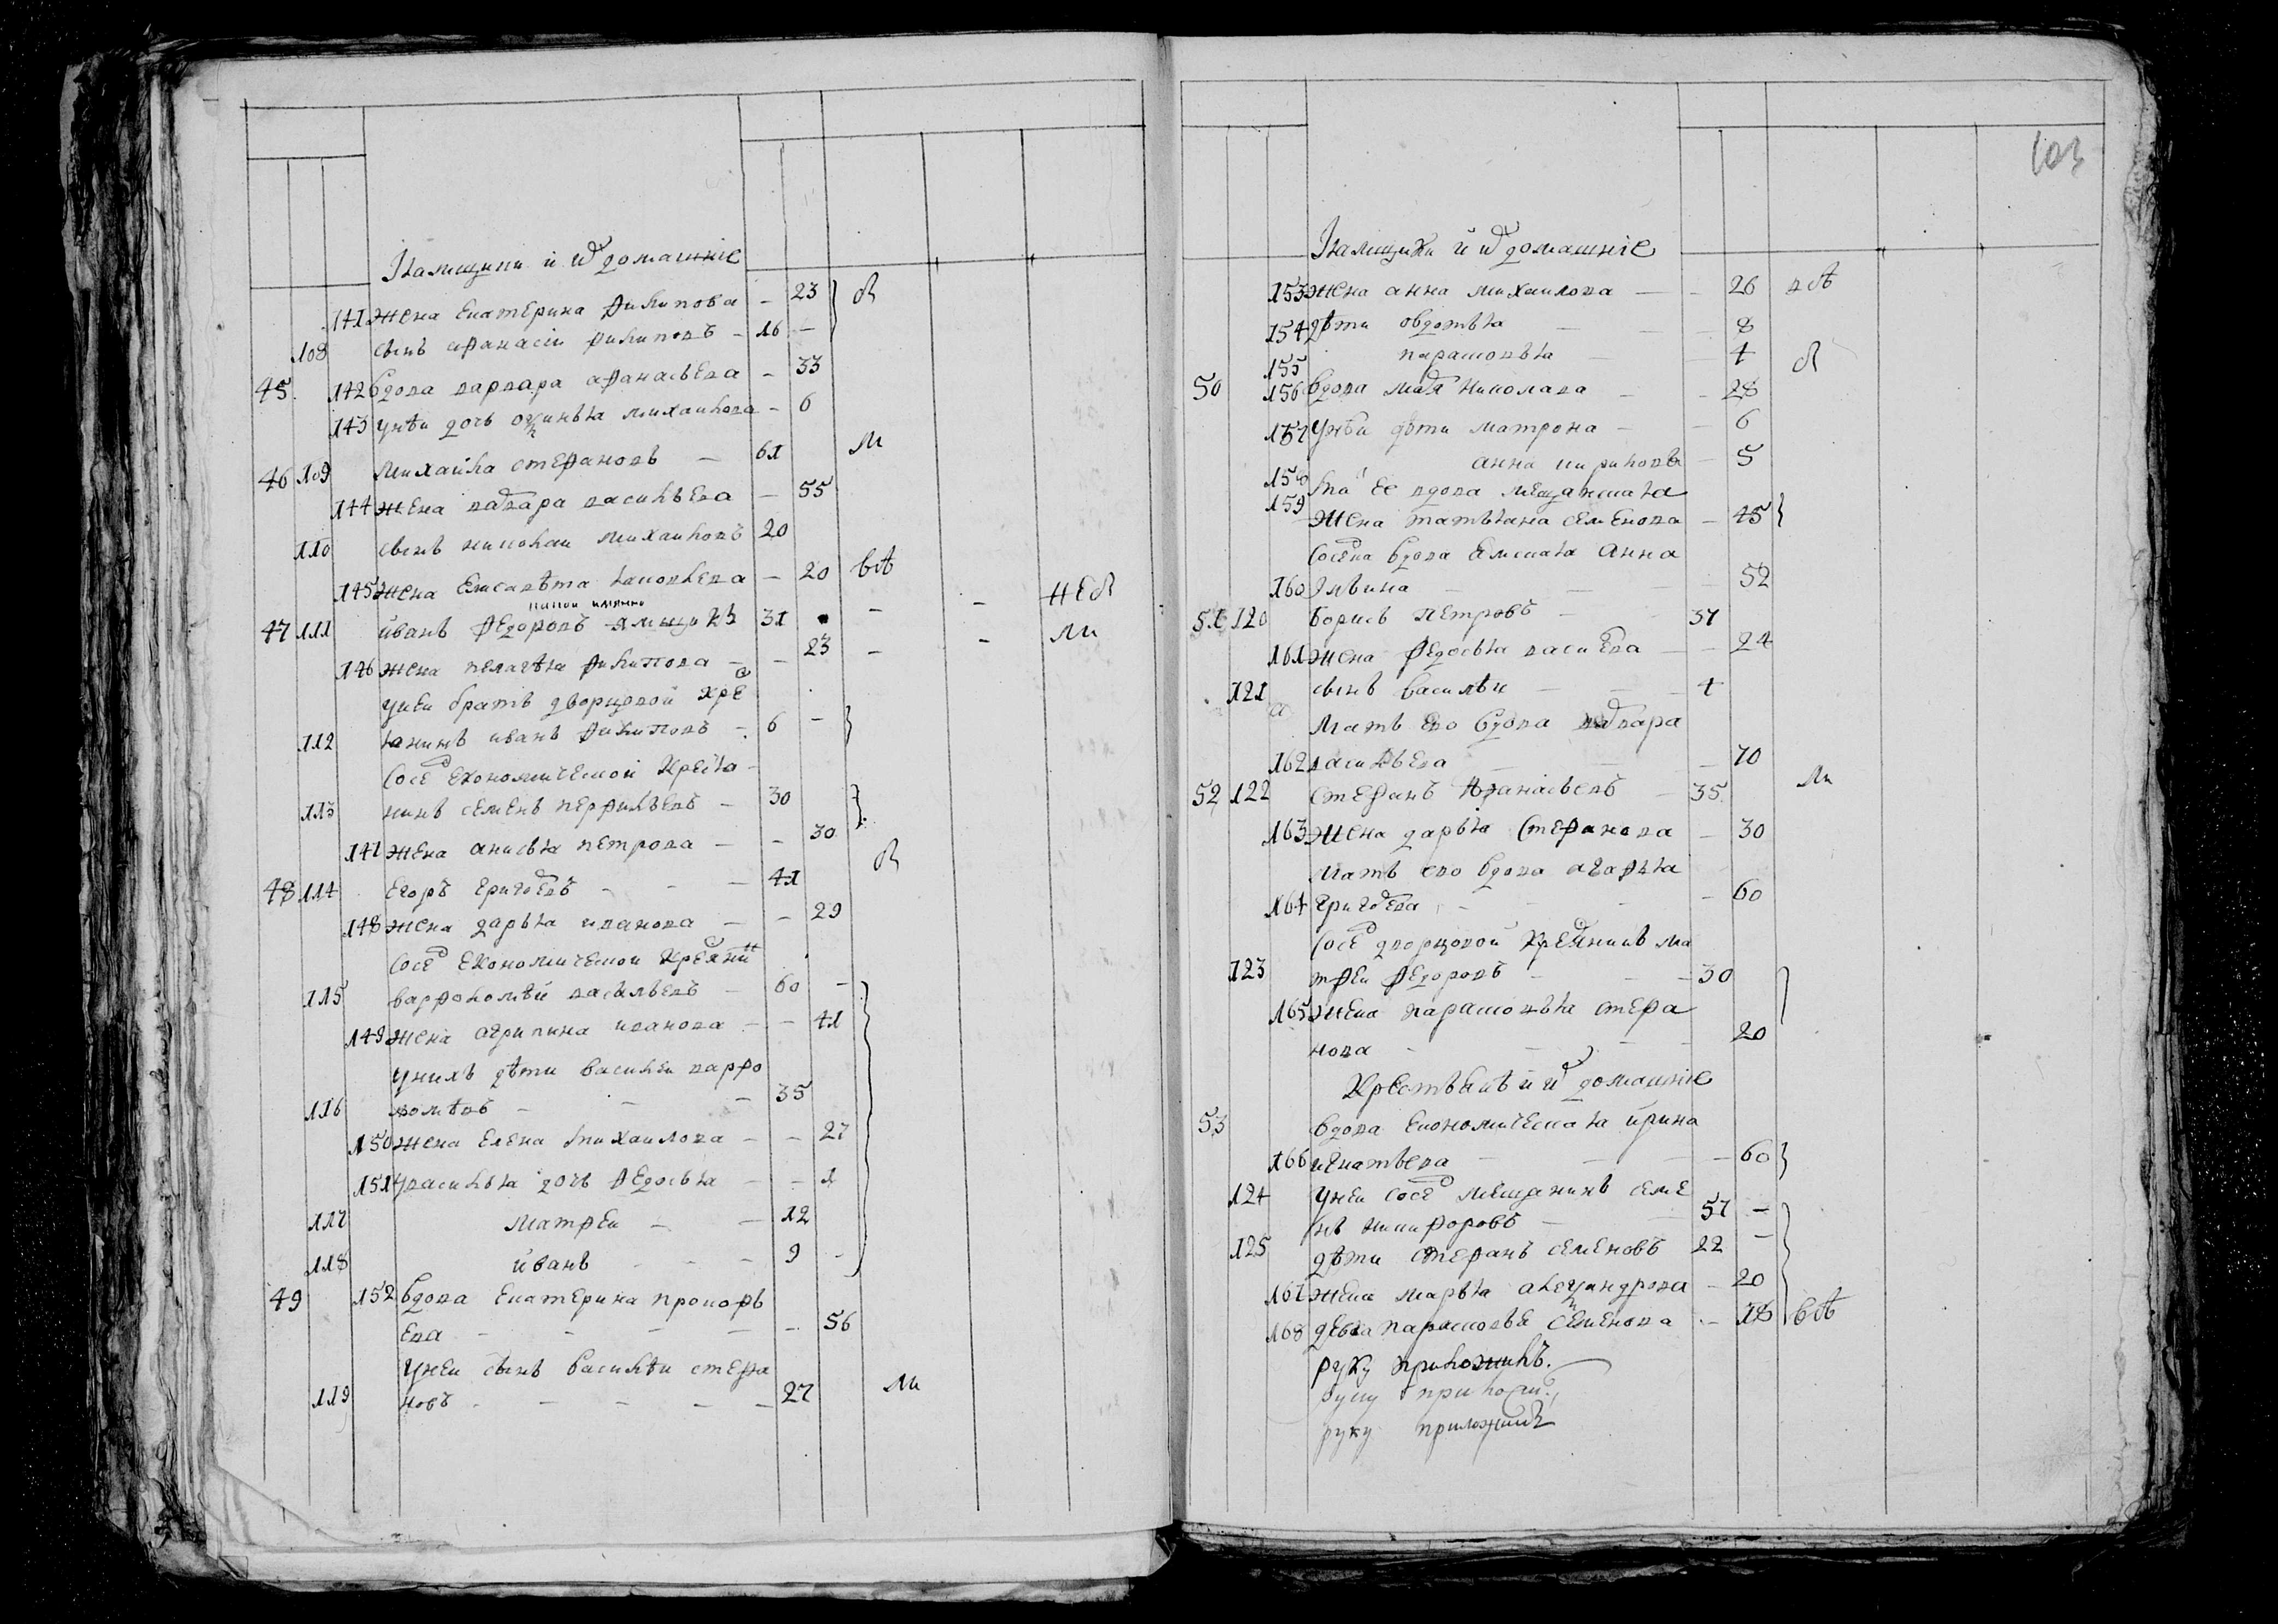 Ямщики и ихъ домашнiе
141 жена Екатерина Филипова - 23 } я
108 сынъ афанасiи филиповъ - 16 -
45. 142 вдова варвара афанасьева - 33
143 унеи дочь михаилова - 6
46 109 михаила стефановъ - 61 м
144 жена варвара васильева - 55
110 сынъ николаи михаиловъ 20
145 жена Елисавета яковлева - 20 всѣ
47 111 иванъ федоровъ 31 - - нея
146 жена пелагѣя филипова - - 23 - - м
унеи братъ дворцовой хре
112 янинъ иванъ филиповъ - 6 - }
Сосе Економическои крестья-
113 нинъ семенъ перфильевъ - 30 }
147 жена анисья петрова - - 30
48 114 Егоръ григоревъ - - - 41 я
148 жена дарья иванова - - 29
Сосе Економическои Крестянинъ
115 варфоломѣй васильевъ - 60 -
149 жена агрипина иванова - - 41
унихъ дѣти василеи варфо
116 ломѣевъ - - - 35
150 жена Елена михаилова - - 27
151 увасилья дочь федосья - - 1
117 матфеи - - 12
118 иванъ - - - 9 -
49 152 вдова Екатерина прокофь
Ева - - - - - 56
унеи сынъ василѣи стефа
119 новъ - - - - - 27 м
103
Ямщики и ихъ домашнiе
153 жена анна михаилова - - 26 всѣ
154 дѣти овдотья - - - 8
155 парасковья - - 4 я
50 156 вдова марья николаева - - 28
157 унеи дѣти матрона - - 6
158 анна кирилова - 5
159 ма ее вдова мещанская
жена татьяна семенова - 45 }
Соседка вдова ямская анна
160 Ильина - - - 52
51 120 Борисъ петровъ - 37
161 жена федосья васильева - - 24
121 сынъ василѣи - - - 4
мать Его вдова варвара
162 васильева - - - 70
52 122 стефанъ афанасьевъ - 35 м
163 жена дарья стефанова - 30
мать ево вдова агафья
164 григорьева - - - 60
Сосе дворцовои крестянинъ ма
123 тфеи федоровъ - - - 30
165 жена парасковья стефа
нова - - - - 20
Крестьянѣ и ихъ домашнiе
53 вдова Економическая ирина
166 игнатьева - - - 60 }
124 унеи сосе мещанинъ семе
нъ никифоровъ - - 57 -
125 дѣти стефанъ семеновъ 22 -
167 жена марья алеѯандрова - 20
168 девка парасковья семенова - - 18 } всѣ
руку приложилъ.
руку приложи
руку приложилъ